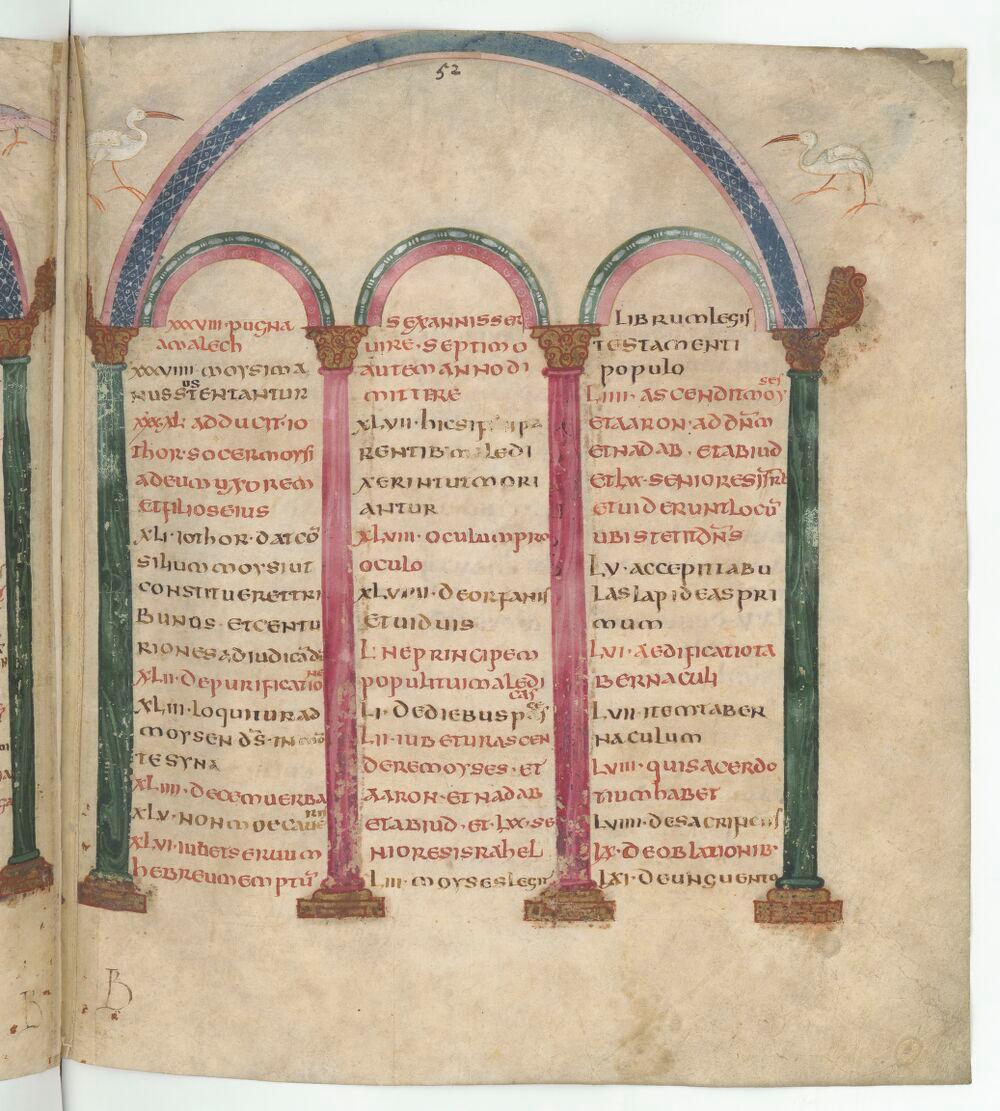 52
xxxviii· pugna
amalech
xxxviiii· moysi ma
nus sustentantur
adducit· io
thor· socer moysi
ad eum uxorem
et filios eius
xli· iothor· dat co̅
silium moysi ut
constitueret tri
bunos· et centu
riones ad iudica̅d
xlii· de purificatione
xliii· loquitur ad
moysen d̅s· in
te syna
xliiii· decem uerba
xlv· non moecaueris
xlvi· iubet seruum
hebreum emptu̅
sex annis ser
uire· septimo
autem anno di
mittere
xlvii· hic si
rentib· maledi
xerint ut mori
antur
xlviii· oculum pro
oculo
xlviiii· de orfanis
et uiduis
l· ne principem
populi tui maledicas
li· de diebus
lii· iubetur ascen
dere moyses· et
aaron· et nadab
et abiud· et lxx· se
niores israhel
liii· moyses legit
librum legis
testamenti
populo
liiii· ascendit moyses
et aaron· ad dn̅m
et nadab· et abiud
et lxx· seniores isrl
et uiderunt locu̅
ubi stetit dn̅s
lv· accepit tabu
las lapideas pri
mum
lvi· aedificatio ta
bernaculi
lvii· item taber
naculum
lviii· qui sacerdo
tium habet
lviiii· de sacrificiis
lx· de oblationib·
lxi· de unguento
B
B